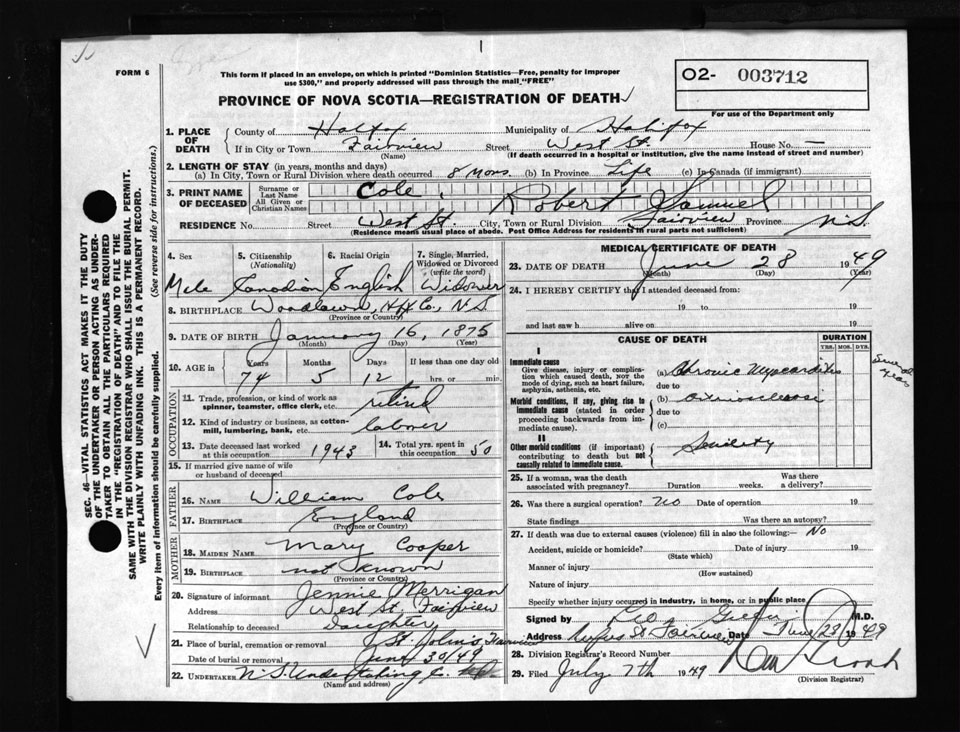 FORM 6
This form if placed in an envelope, on which is printed "Dominion Statistics—Free, penalty for improper
use $300," and properly addressed will pass through the mail "FREE"
PROVINCE OF NOVA SCOTIA—REGISTRATION OF DEATH
O2- 003712
For use of the Department only
SEC. 46—VITAL STATISTICS ACT MAKES IT THE DUTY
OF THE UNDERTAKER OR PERSON ACTING AS UNDER-
TAKER TO OBTAIN ALL THE PARTICULARS REQUIRED
IN THE "REGISTRATION OF DEATH" AND TO FILE THE
SAME WITH THE DIVISION REGISTRAR WHO SHALL ISSUE THE BURIAL PERMIT.
WRITE PLAINLY WITH UNFADING INK. THIS IS A PERMANENT RECORD.
Every item of information should be carefully supplied. (See reverse side for instructions.)
1. PLACE OF DEATH
County of Halifax Municipality of Halifax
If in City or Town Fairview Street West St. House No. —
(Name) (If death occurred in a hospital or institution, give the name instead of street and number)
2. LENGTH OF STAY (in years, months and days)
(a) In City, Town or Rural Division where death occurred 8 Mons. (b) In Province Life (c) In Canada (if immigrant)
3. PRINT NAME OF DECEASED
Surname or Last Name Cole,
All Given or Christian Names Robert Samuel
RESIDENCE No. Street West St. City, Town or Rural Division Fairview Province N.S.
(Residence means usual place of abode. Post Office Address for residents in rural parts not sufficient)
4. Sex 5. Citizenship (Nationality) 6. Racial Origin 7. Single, Married, Widowed or Divorced (write the word)
Male Canadian English Widower
8. BIRTHPLACE Woodlawn Hfx Co., N.S.
(Province or Country)
9. DATE OF BIRTH January 16, 1875
(Month) (Day) (Year)
10. AGE in Years Months Days If less than one day old
74 5 12 hrs. or min.
OCCUPATION
11. Trade, profession, or kind of work as spinner, teamster, office clerk, etc. retired
12. Kind of industry or business, as cotton-mill, lumbering, bank, etc. laborer
13. Date deceased last worked at this occupation 1943 14. Total yrs. spent in this occupation 50
15. If married give name of wife or husband of deceased
FATHER
16. NAME William Cole
17. BIRTHPLACE England
(Province or Country)
MOTHER
18. MAIDEN NAME Mary Cooper
19. BIRTHPLACE not known
(Province or Country)
20. Signature of informant Jennie Merrigan
Address West St. Fairview
Relationship to deceased Daughter
21. Place of burial, cremation or removal St. John's Fairview
Date of burial or removal June 30/49
22. UNDERTAKER N.S. Undertaking Co.
(Name and address)
MEDICAL CERTIFICATE OF DEATH
23. DATE OF DEATH June 28 1949
(Month) (Day) (Year)
24. I HEREBY CERTIFY that I attended deceased from:
19 to 19
and last saw h alive on 19
CAUSE OF DEATH DURATION
YRS. MOS. DYS.
I
Immediate cause
Give disease, injury or complication which caused death, not the mode of dying, such as heart failure, asphyxia, asthenia, etc.
(a) Chronic Myocarditis
due to
Morbid conditions, if any, giving rise to immediate cause (stated in order proceeding backwards from immediate cause).
(b)
due to
(c)
II
Other morbid conditions (if important) contributing to death but not causally related to immediate cause.
Senility
25. If a woman, was the death associated with pregnancy? Duration weeks. Was there a delivery?
26. Was there a surgical operation? No Date of operation 19
State findings Was there an autopsy?
27. If death was due to external causes (violence) fill in also the following:— No
Accident, suicide or homicide? Date of injury 19
(State which)
Manner of injury
(How sustained)
Nature of injury
Specify whether injury occurred in industry, in home, or in public place
Signed by M.D.
Address St Fairview Date June 29/ 1949
28. Division Registrar's Record Number
29. Filed July 7th 1949
(Division Registrar)